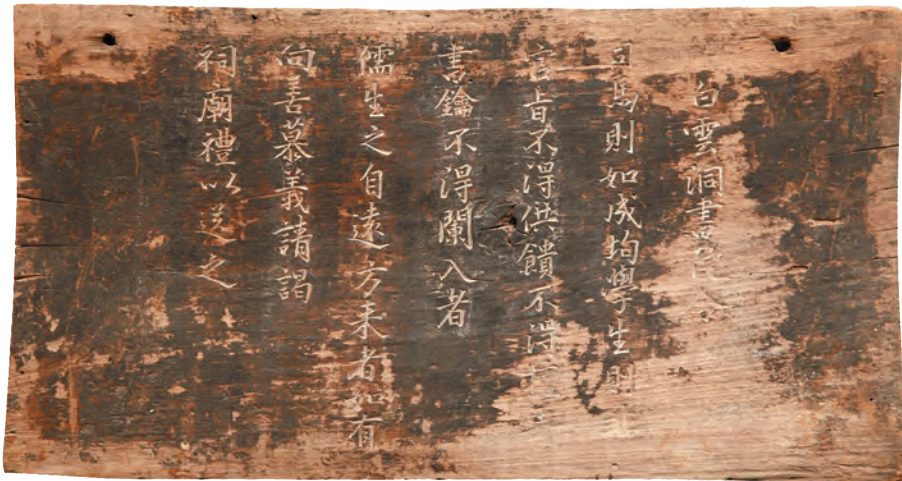 白雲洞書院
司馬則如成均學生則
不得供饋不得
書鑰不得闌入者
儒生之自遠方来者如有
向善慕義請謁
祠廟禮以送之